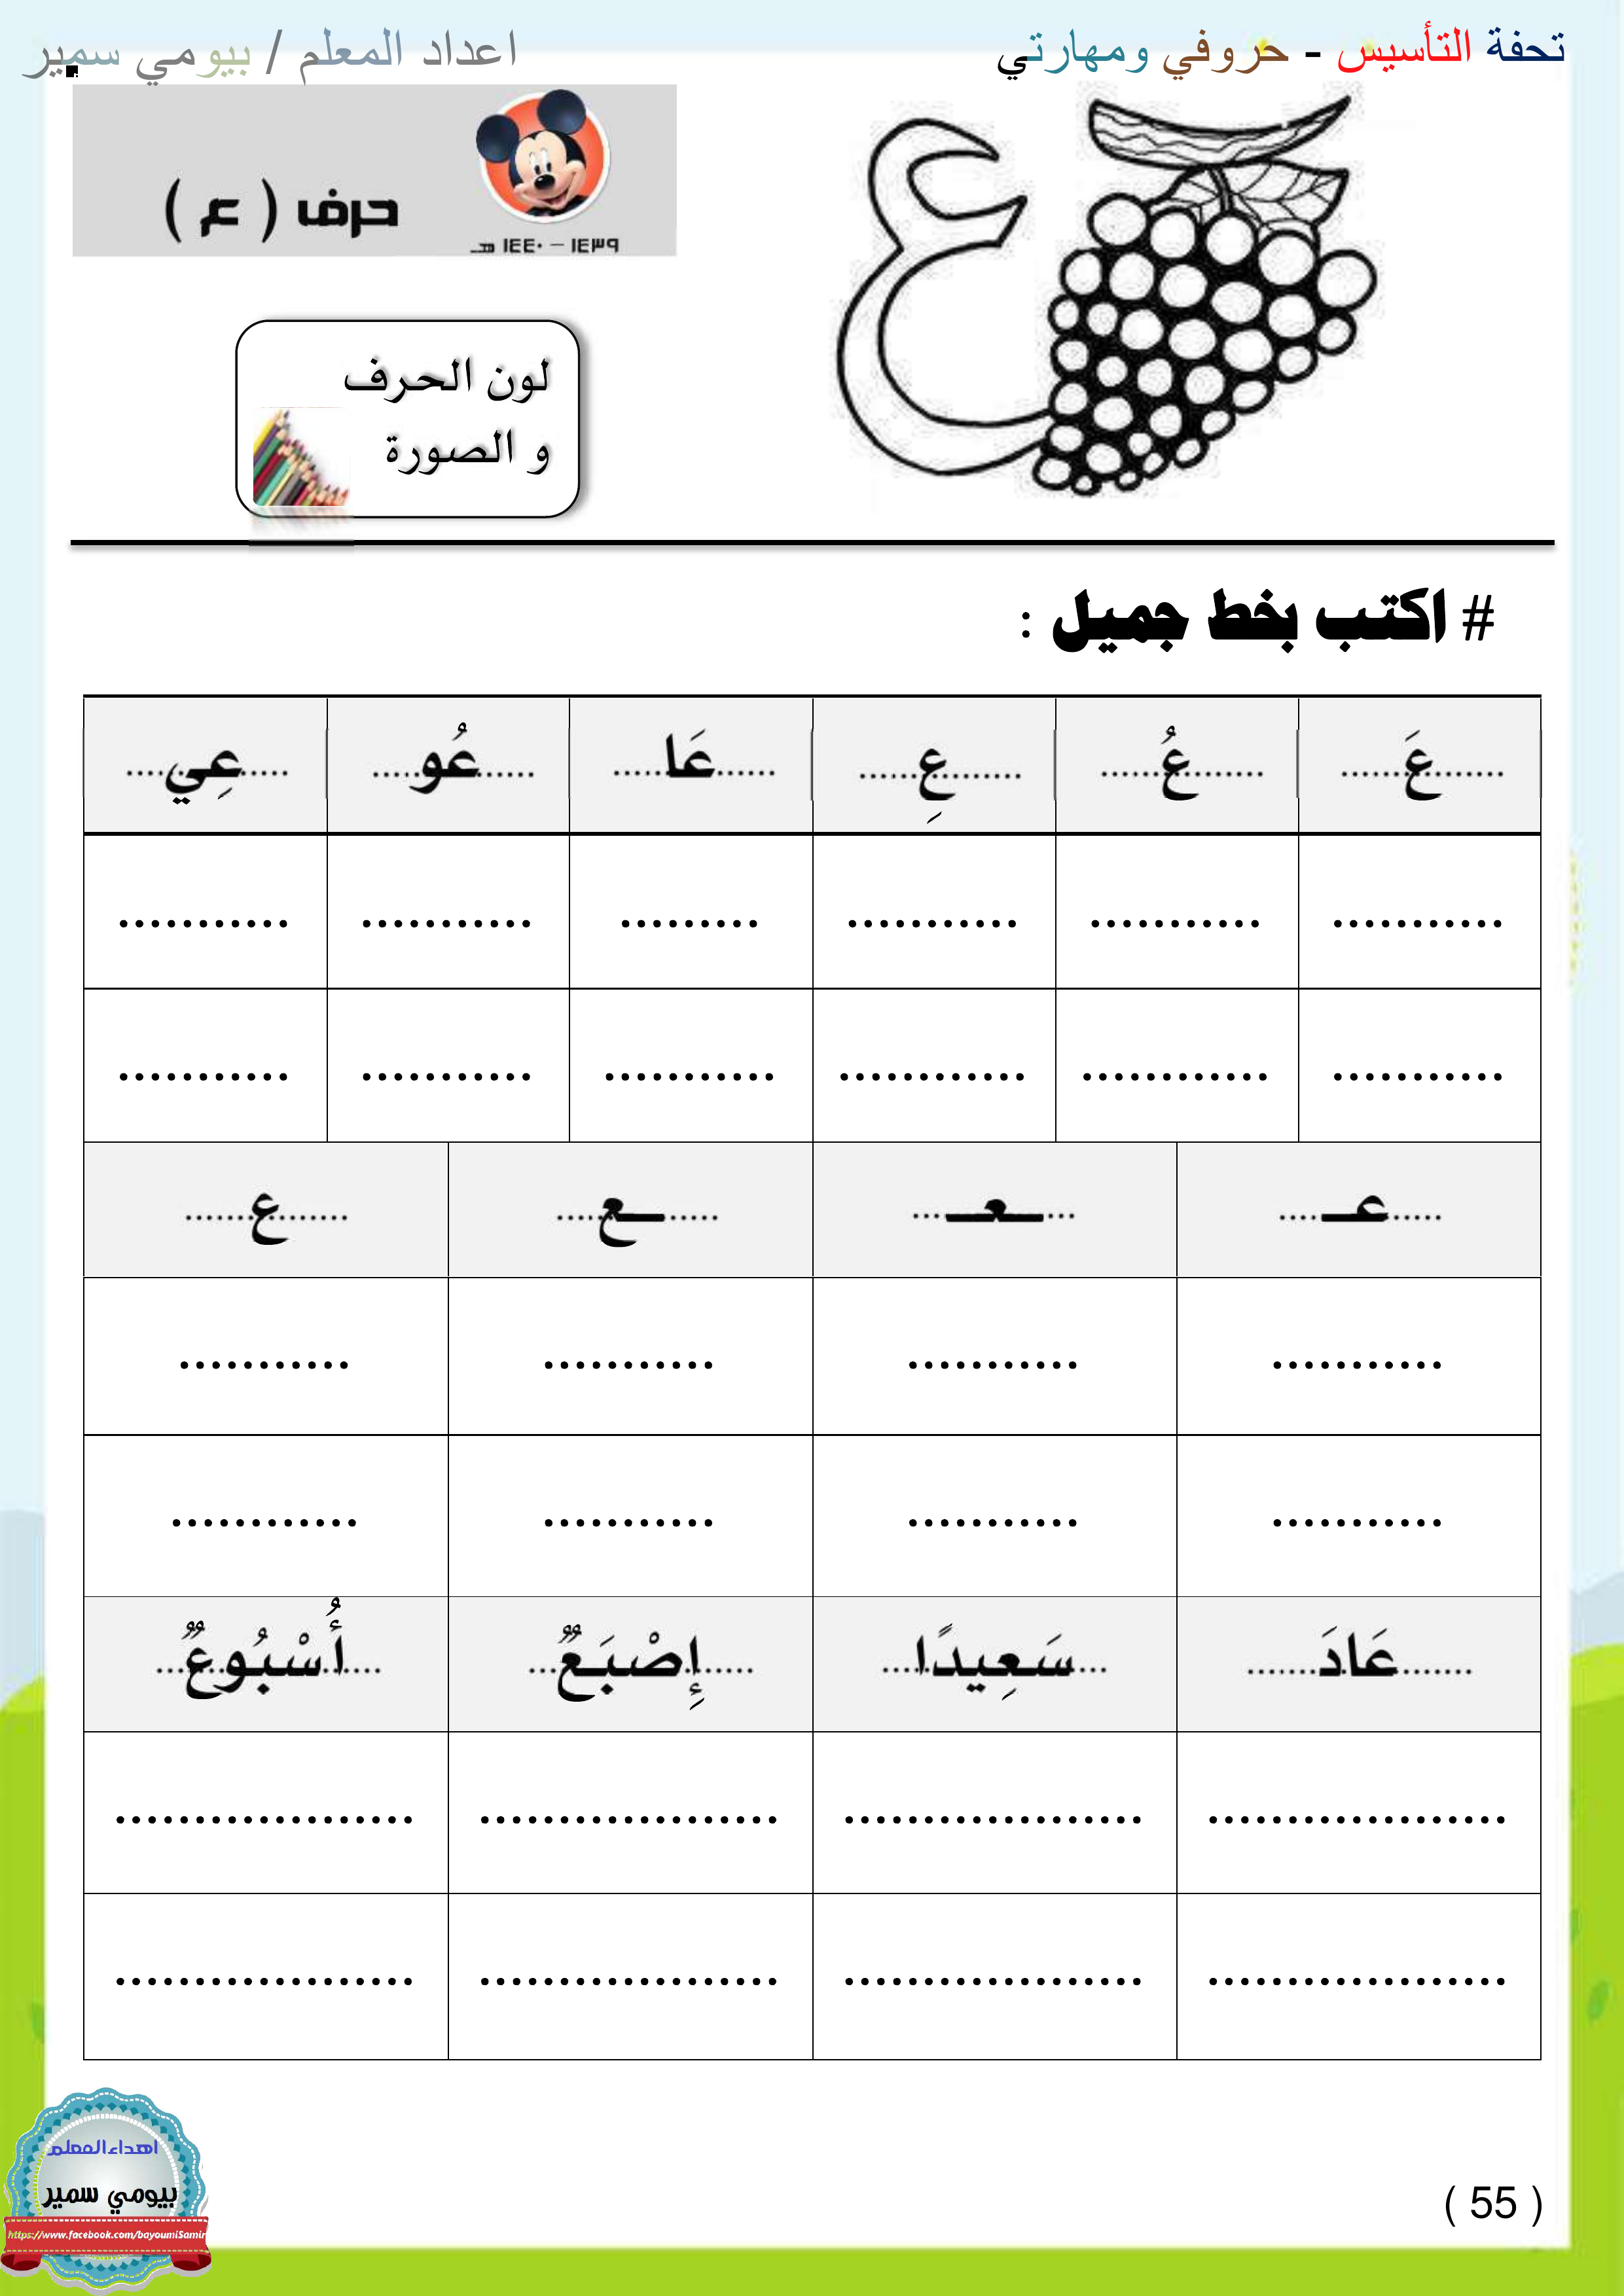 تحفة التأسيس - حروفي ومهارتي
اعداد المعلم / بيومي سمير
حرف ( ع )
١٤٣٩ – ١٤٤٠ هـ
ع
لون الحرف
و الصورة
# اكتب بخط جميل :
........عَ...... ........عُ...... ........عِ...... ......عَا..... ......عُو..... .....عِي....
........... ........... ........... ......... ........... ...........
........... ............ ............ ........... ........... ...........
.....عـ.... ...ـعـ... .....ـع.... .......ع.......
........... ........... ........... ...........
........... ........... ........... ............
........عَادَ....... ...سَعِيدًا.... .....إِصْبَعٌ... ....أُسْبُوعٌ...
................... ................... ................... ...................
................... ................... ................... ...................
اهداء المعلم
بيومي سمير
https://www.facebook.com/bayoumiSamir
( 55 )